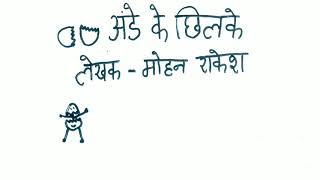 अंडे के छिलके
लेखक - मोहन राकेश